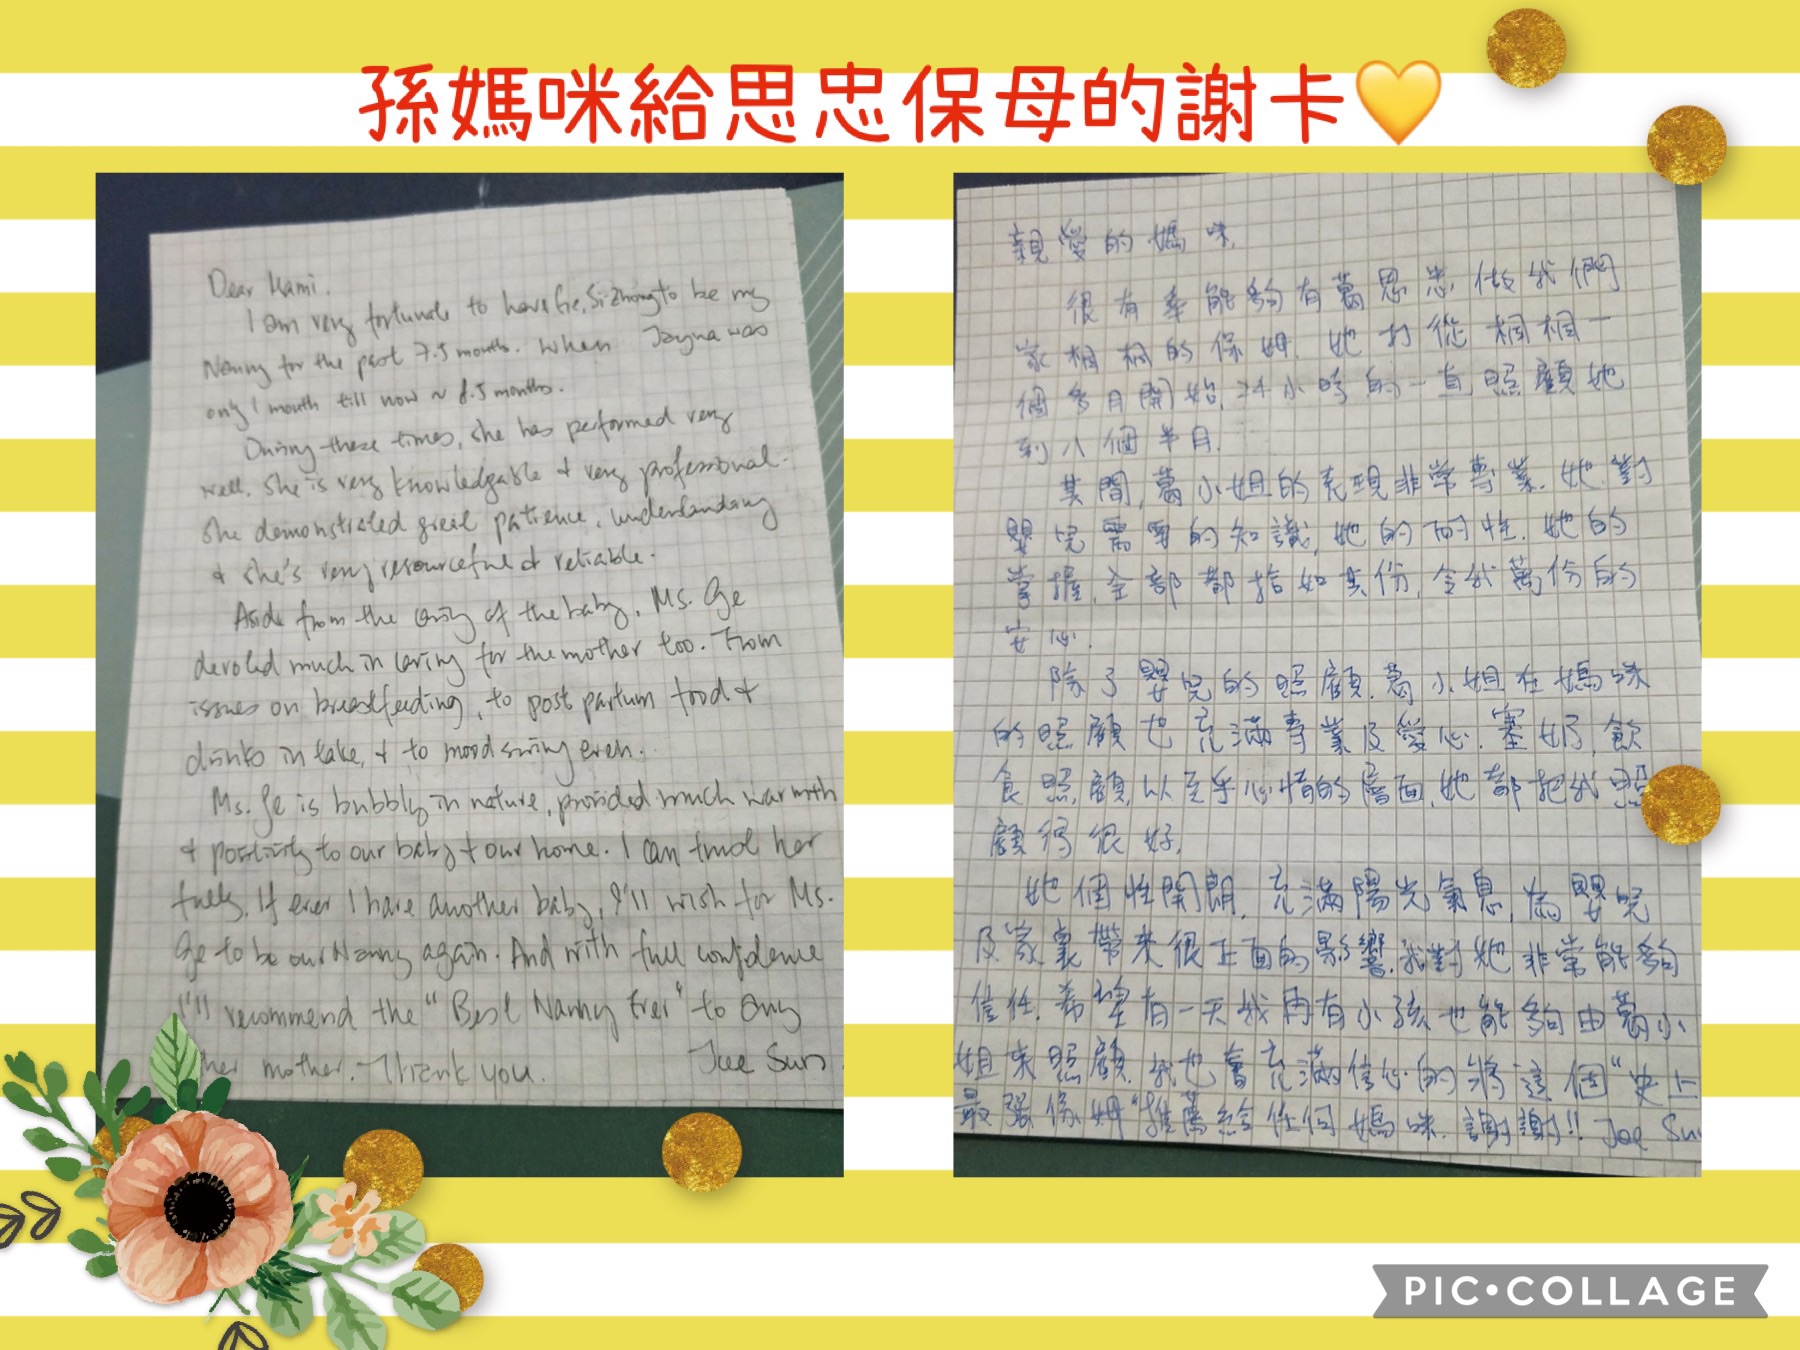 孫媽咪給思忠保母的謝卡💛
Dear Mami.
I am very fortunate to have Ge, Si Zhong to be my
Nanny for the past 7.5 months. When Jayna was
only 1 month till now ~ 8.5 months.
During these times, she has performed very
well. She is very knowledgable & very professional.
She demonstrated great patience, understanding
& she's very resourceful & reliable.
Aside from the caring of the baby, Ms. Ge
devoted much in caring for the mother too. From
issues on breastfeeding, to post partum food &
drinks in take, & to mood swing even.
Ms. Ge is bubbly in nature, provided much warmth
& positivity to our baby & our home. I can trust her
fully. If ever I have another baby, I'll wish for Ms.
Ge to be our Nanny again. And with full confidence
I'll recommend the "Best Nanny Ever" to any
her mother. Thank you. Joe Sun
親愛的媽咪,
很有幸能夠有葛思忠做我們
家桐桐的保姆. 她打從桐桐一
個多月開始, 24小時的一直照顧她
到八個半月.
其間, 葛小姐的表現非常專業. 她對
嬰兒需要的知識, 她的耐性. 她的
掌握, 全部都恰如其份, 令我萬份的
安心.
除了嬰兒的照顧. 葛小姐在媽咪
的照顧也充滿專業及愛心. 塞奶, 飲
食照顧, 以至乎心情的層面, 她都把我照
顧得很好.
她個性開朗, 充滿陽光氣息, 為嬰兒
及家裏帶來很正面的影響. 我對她非常能夠
信任. 希望有一天我再有小孩也能夠由葛小
姐來照顧. 我也會充滿信心的將這個"史上
最強保姆"推薦給任何媽咪. 謝謝!! Joe Su
PIC•COLLAGE